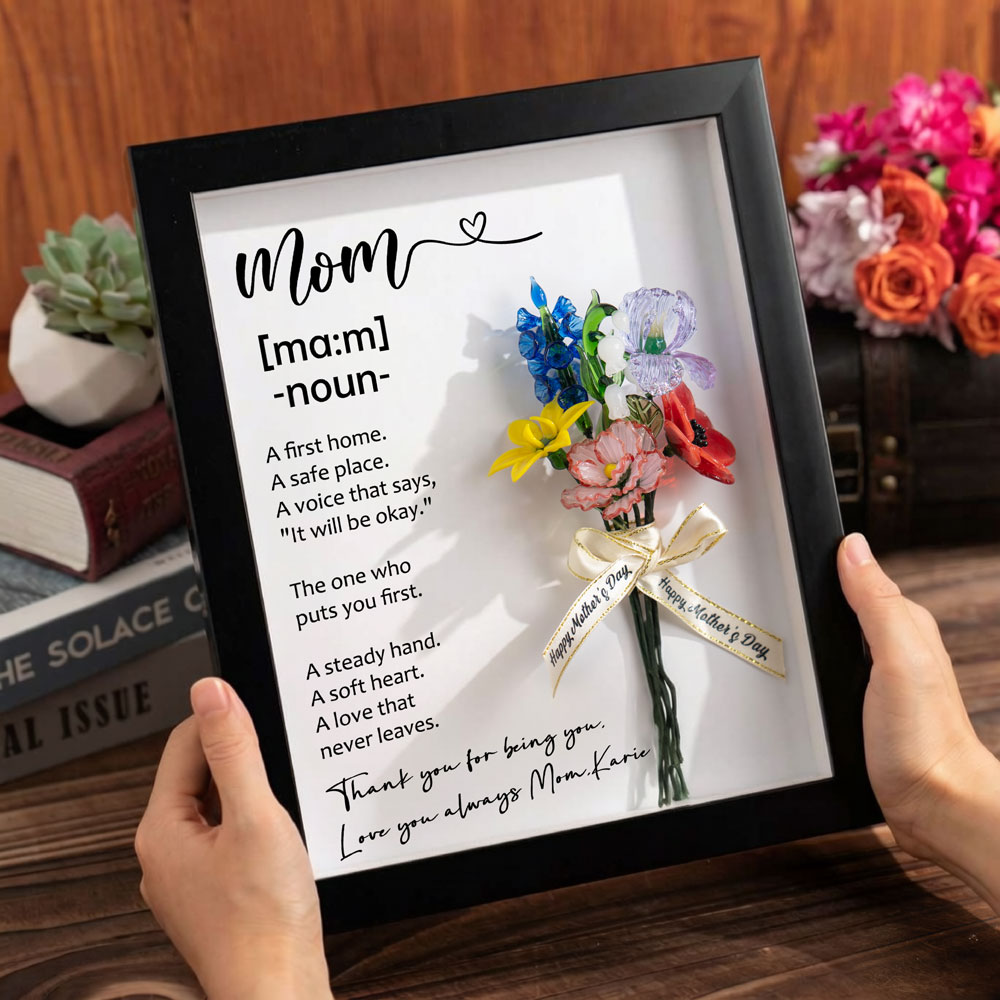 Mom
[ma:m]
-noun-
A first home.
A safe place.
A voice that says,
"It will be okay."
The one who
puts you first.
A steady hand.
A soft heart.
A love that
never leaves.
Thank you for being you.
Love you always Mom,Karie
Happy Mother's Day
Happy Mother's Day
HE SOLACE
AL ISSUE